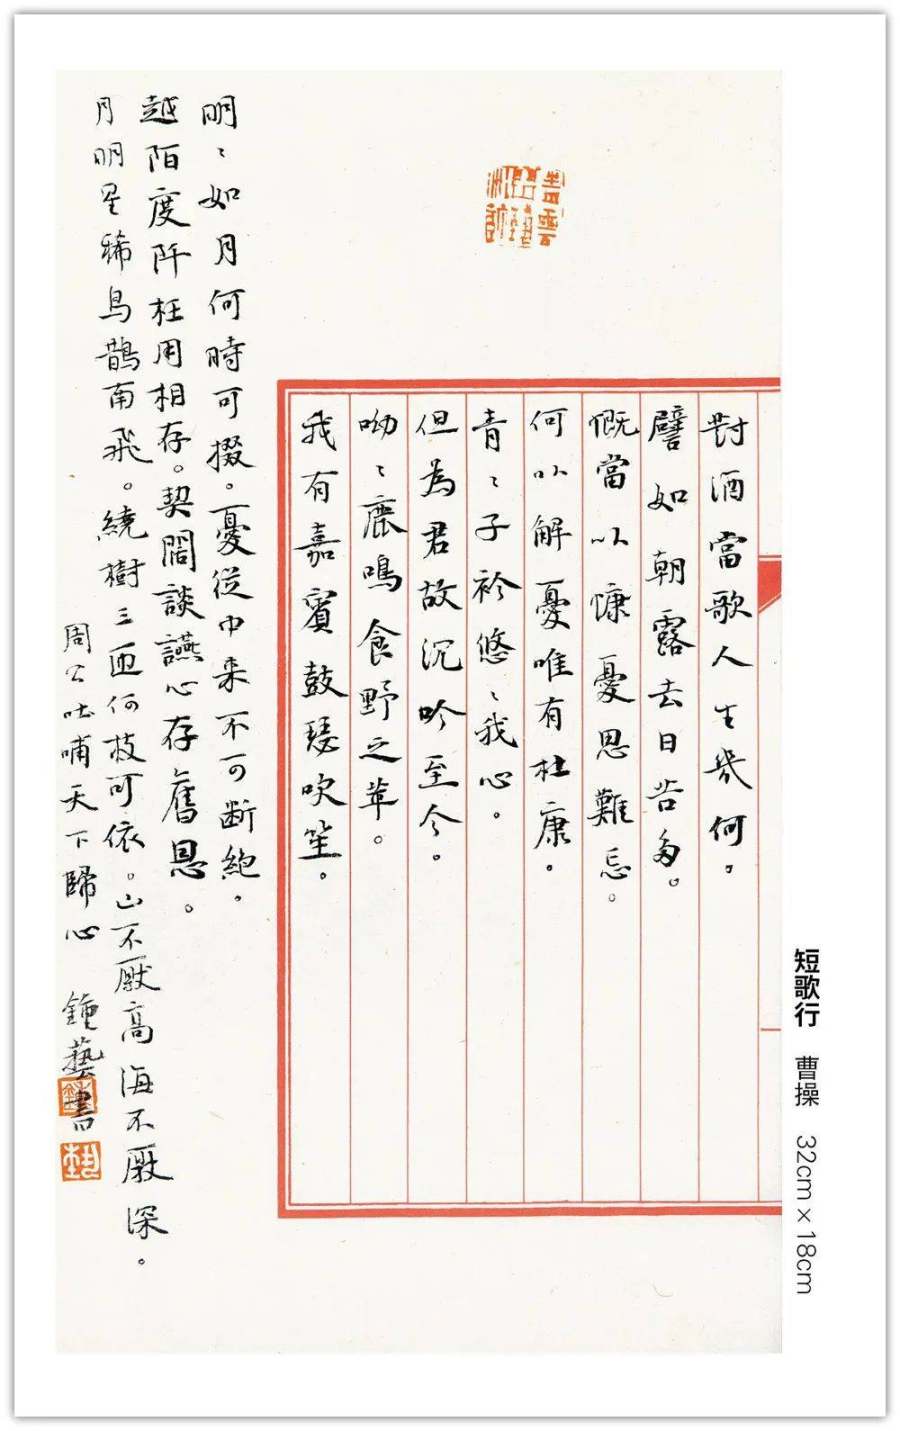 對酒當歌人生幾何。
譬如朝露去日苦多。
慨當以慷憂思難忘。
何以解憂唯有杜康。
青〻子衿悠〻我心。
但為君故沉吟至今。
呦〻鹿鳴食野之苹。
我有嘉賓鼓瑟吹笙。
明〻如月何時可掇。憂從中来不可断絶。
越陌度阡枉用相存。契闊談讌心存舊恩。
月明星稀烏鵲南飛。繞樹三匝何枝可依。山不厭高海不厭深。
周公吐哺天下歸心 鍾藝書
短歌行 曹操 32cm×18cm